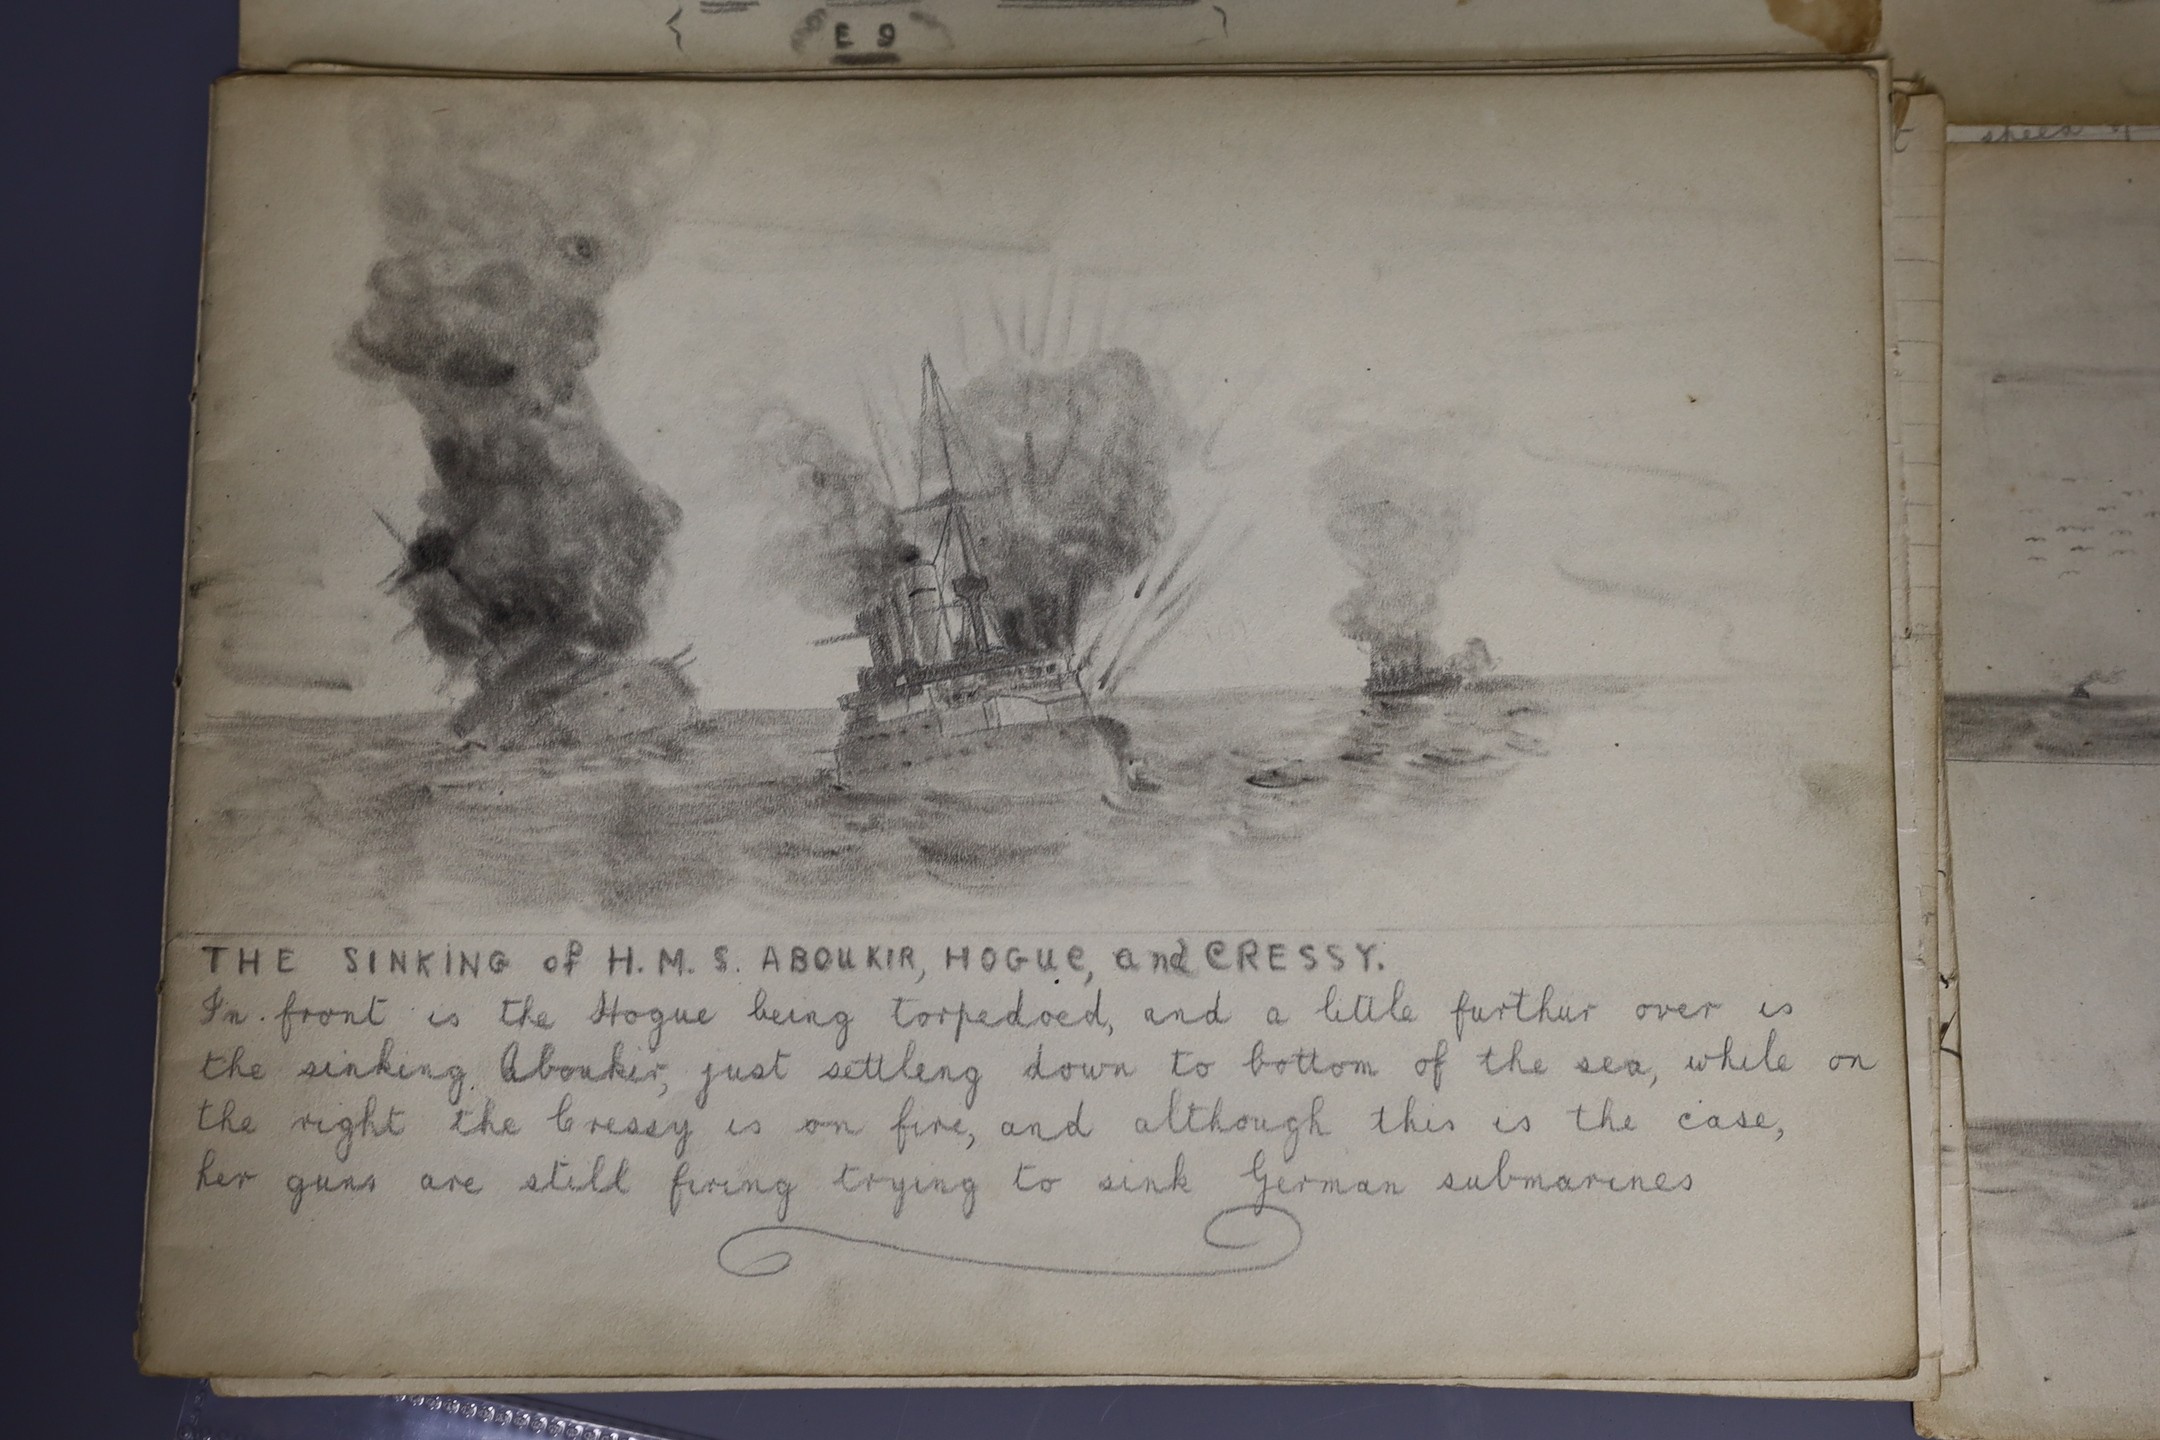 E 9
speed of
THE SINKING of H.M.S. ABOUKIR, HOGUE, and CRESSY.
In front is the Hogue being torpedoed, and a little furthur over is
the sinking Aboukir, just settleng down to bottom of the sea, while on
the right the Cressy is on fire, and although this is the case,
her guns are still firing trying to sink German submarines